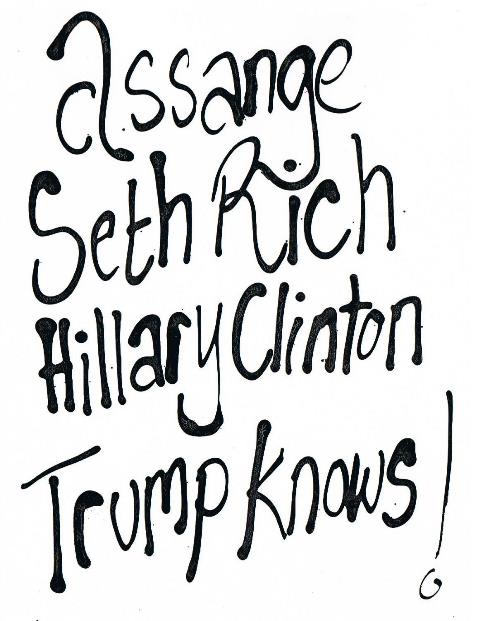 assange
Seth Rich
Hillary Clinton
Trump knows!